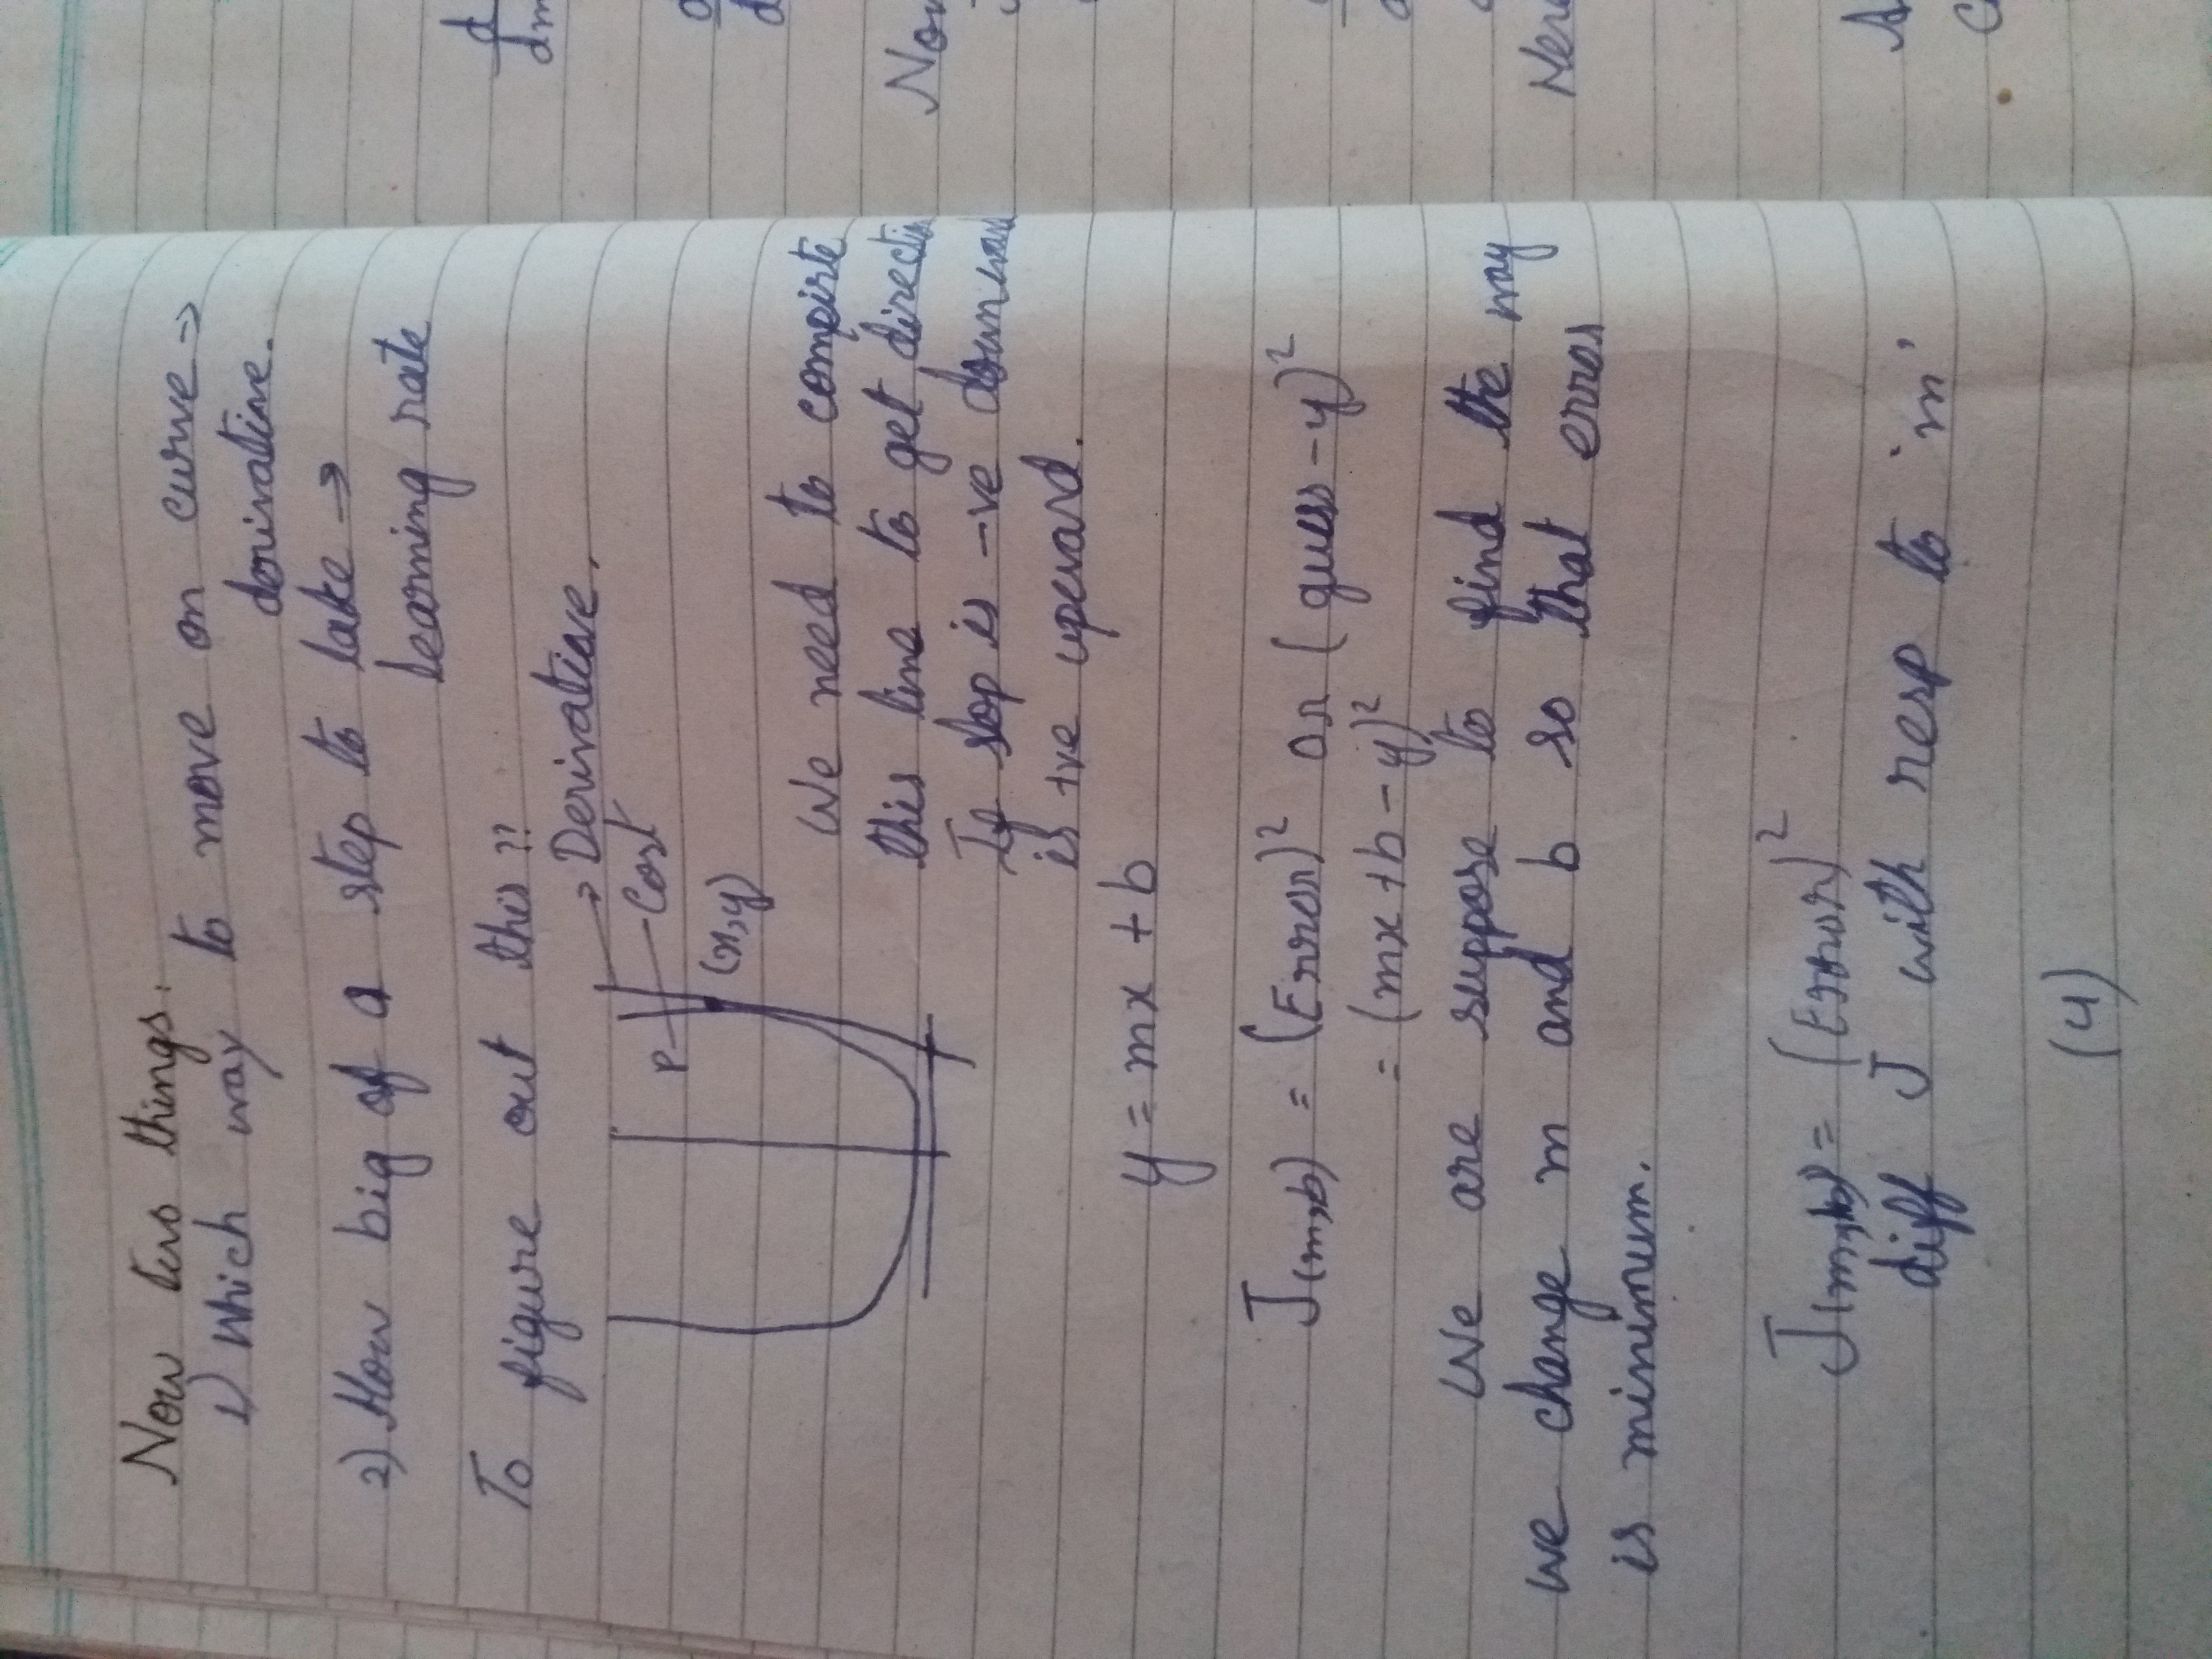 Now two things.
1) Which way to move on curve →
derivative.
2) How big of a step to take →
learning rate
To figure out this ??
→ Derivative.
P
Cost
(x,y)
We need to compute
this line to get directio
If slop is -ve downward
is +ve upward.
y = mx + b
J(m,b) = (Error)² or (guess-y)²
= (mx+b-y)²
We are suppose to find the way
we change m and b so that error
is minimum.
J(m,b) = (Error)²
diff J with resp to 'm'
(4)
d
dm
d
Now
Here